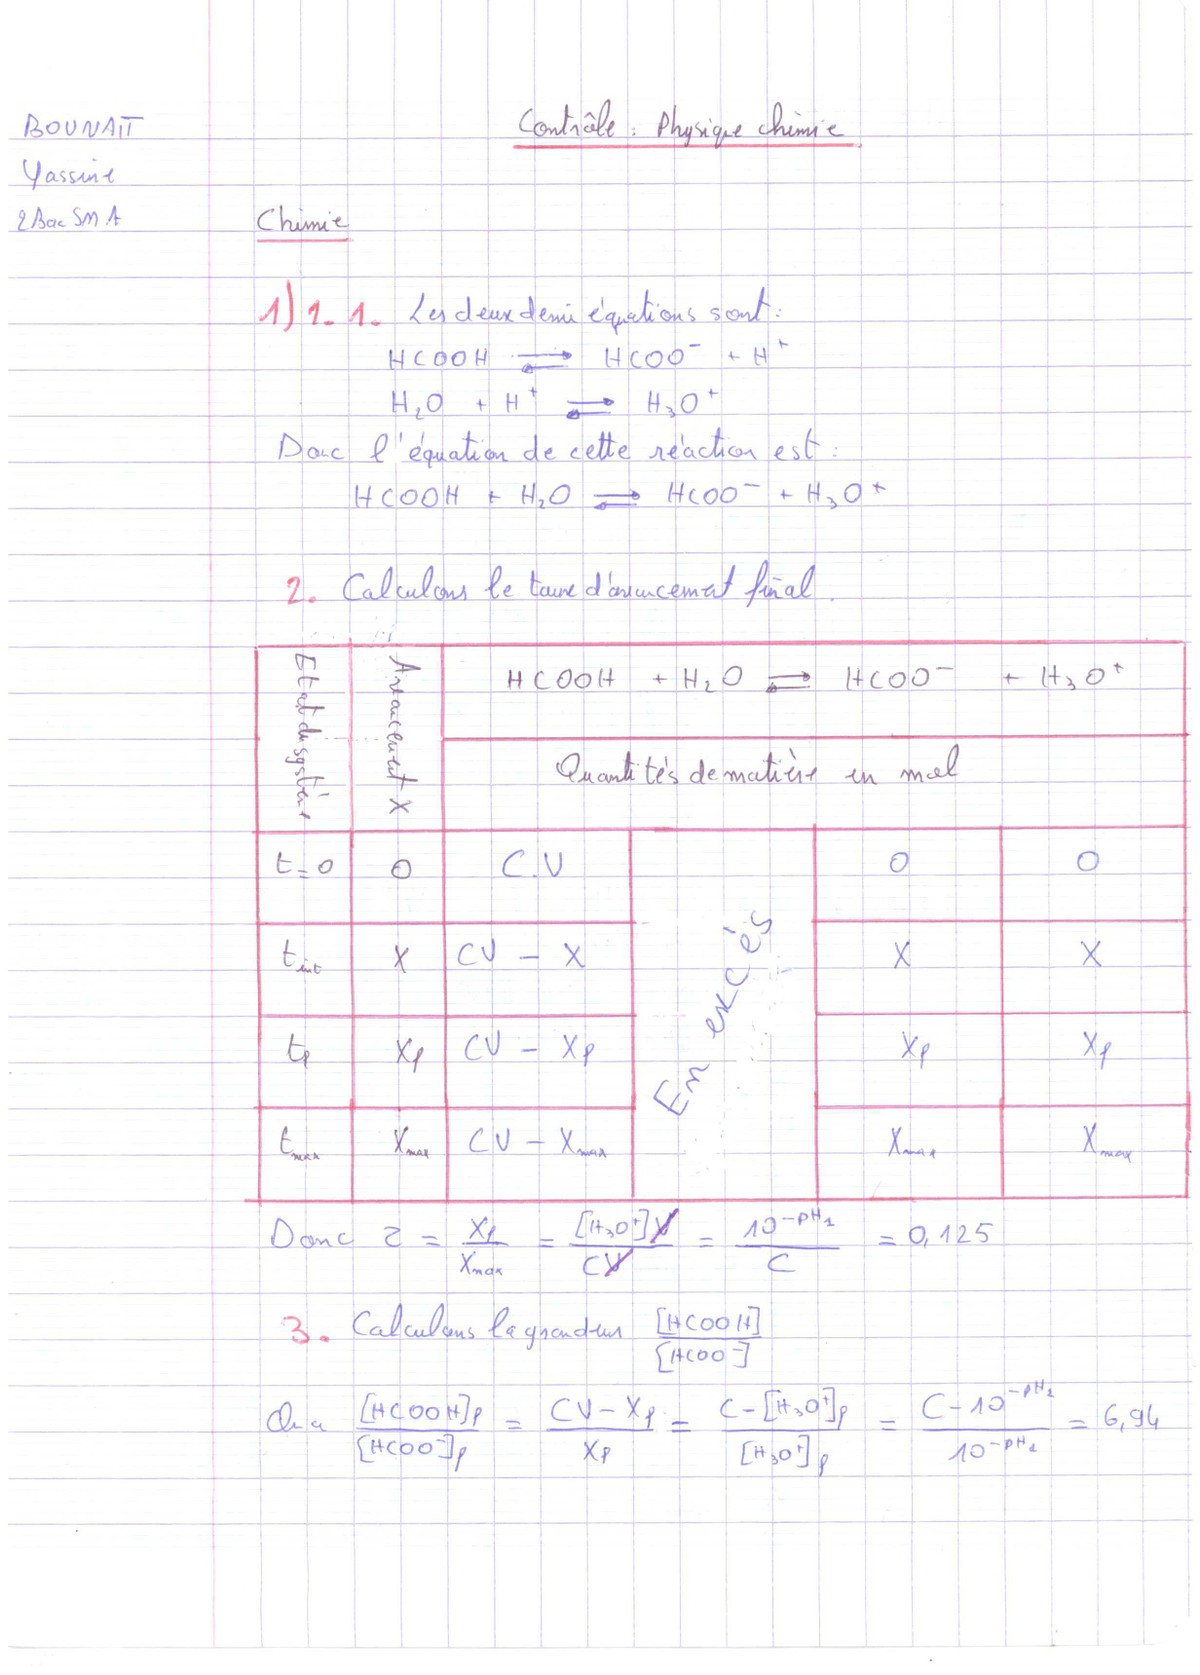 BOUNAIT
Contrôle : Physique chimie
Yassine
2Bac SM A
Chimie
1) 1-1. Les deux demi équations sont :
HCOOH ⇌ HCOO⁻ + H⁺
H₂O + H⁺ ⇌ H₃O⁺
Donc l'équation de cette réaction est :
HCOOH + H₂O ⇌ HCOO⁻ + H₃O⁺
2. Calculons le taux d'avancement final.
Etat du système
Avancement X
HCOOH + H₂O ⇌ HCOO⁻ + H₃O⁺
Quantités de matière en mol
t=0 0 C.V 0 0
t_int X CV - X X X
En excés
t_f X_f CV - X_f X_f X_f
t_max X_max CV - X_max X_max X_max
Donc τ = X_f / X_max = [H₃O⁺]V / CV = 10^-pH₁ / C = 0,125
3. Calculons la grandeur [HCOOH] / [HCOO⁻]
On a [HCOOH]_f / [HCOO⁻]_f = CV - X_f / X_f = C - [H₃O⁺]_f / [H₃O⁺]_f = C - 10^-pH₁ / 10^-pH₁ = 6,94